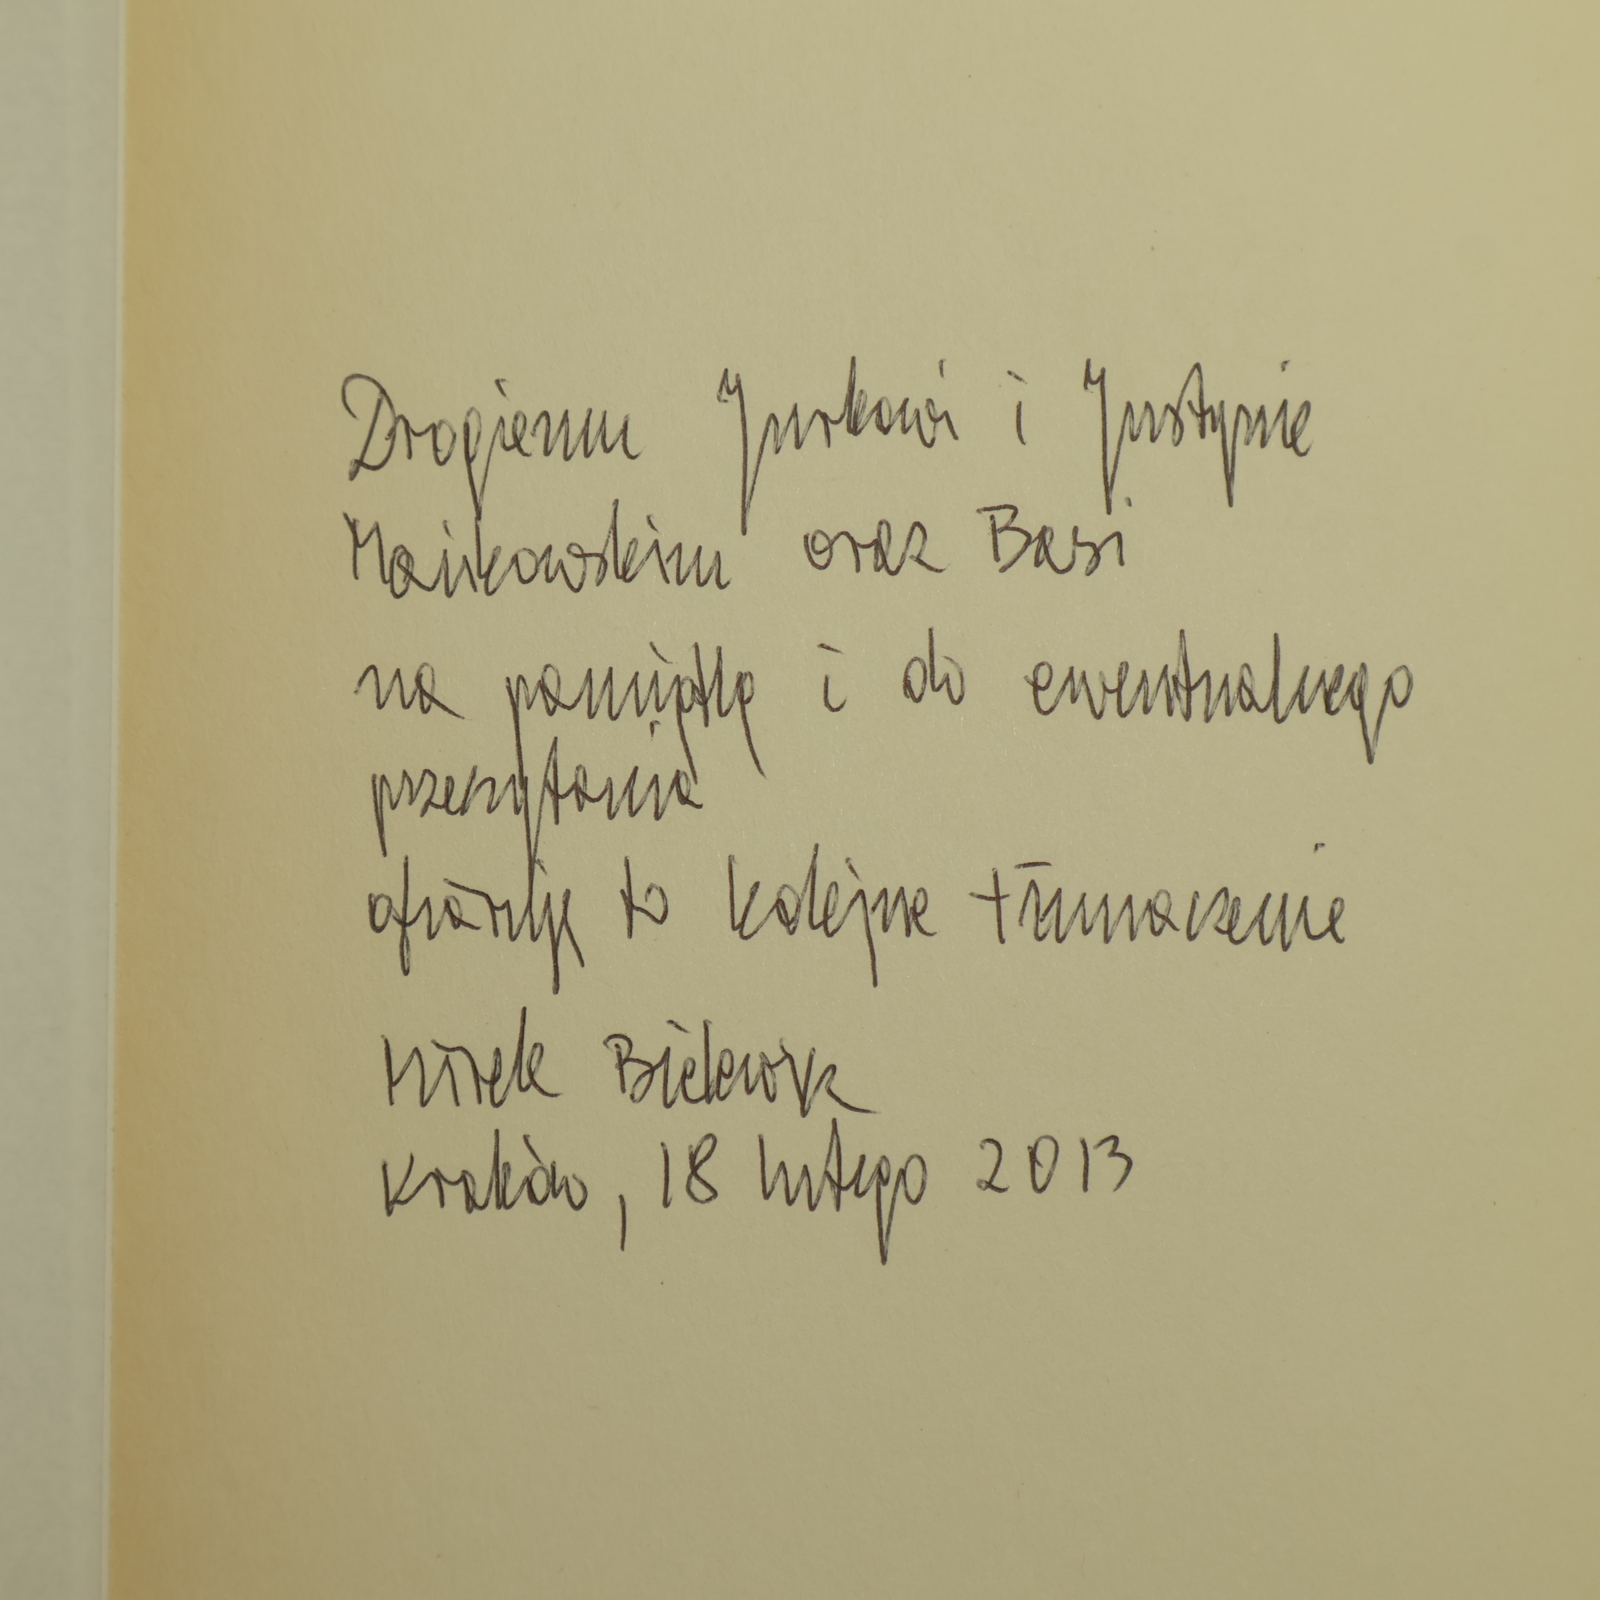 Drogiemu Jurkowi i Justynie
Mańkowskim oraz Basi
na pamiątkę i do ewentualnego
przeczytania
ofiaruję to kolejne tłumaczenie
Mirek Bielewicz
Kraków, 18 lutego 2013